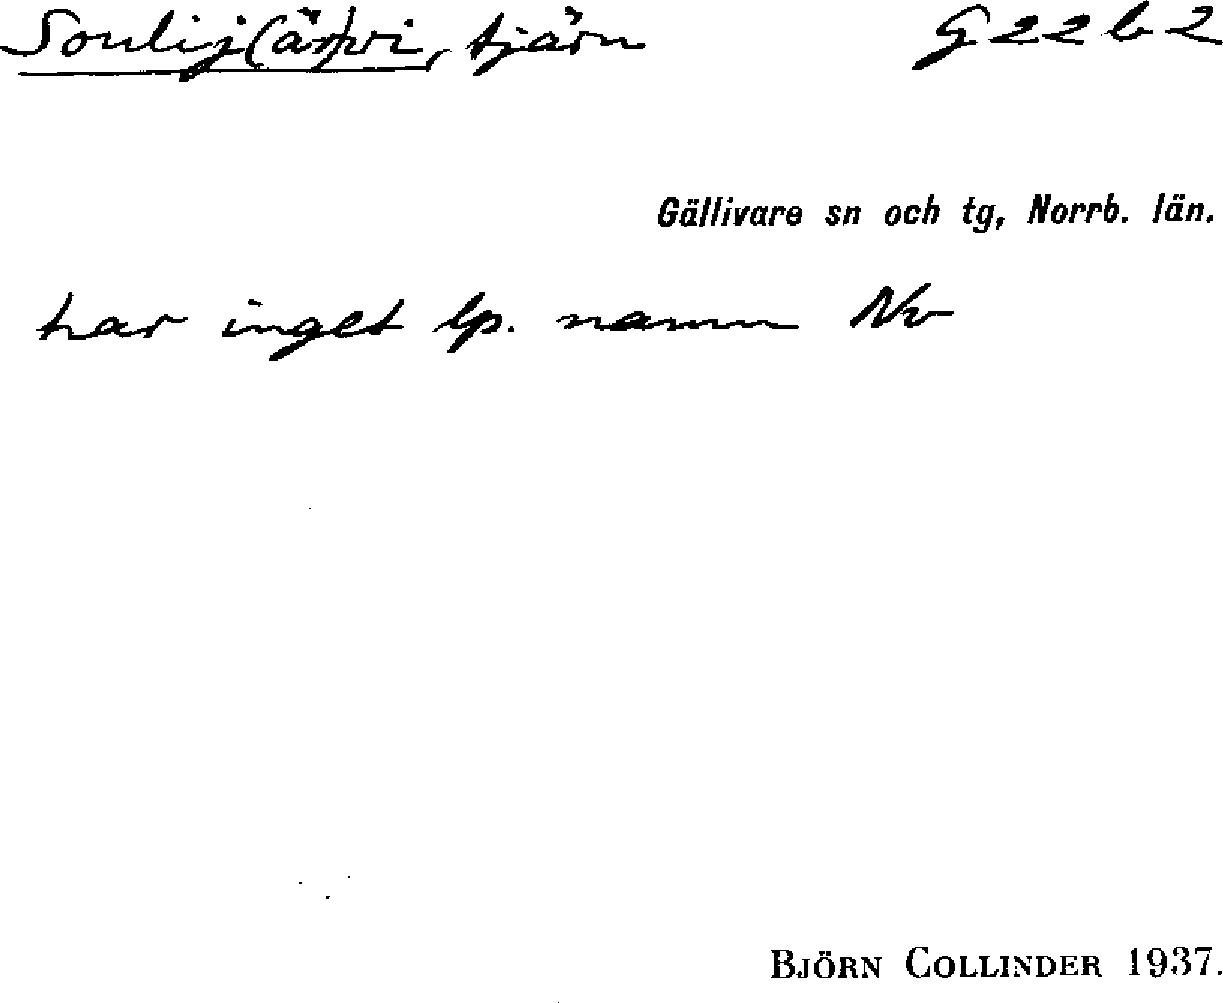 Soulij(är)vi, tjärn G 22 b 2
Gällivare sn och tg, Norrb. län.
har inget lp. namn Nv
BJÖRN COLLINDER 1937.